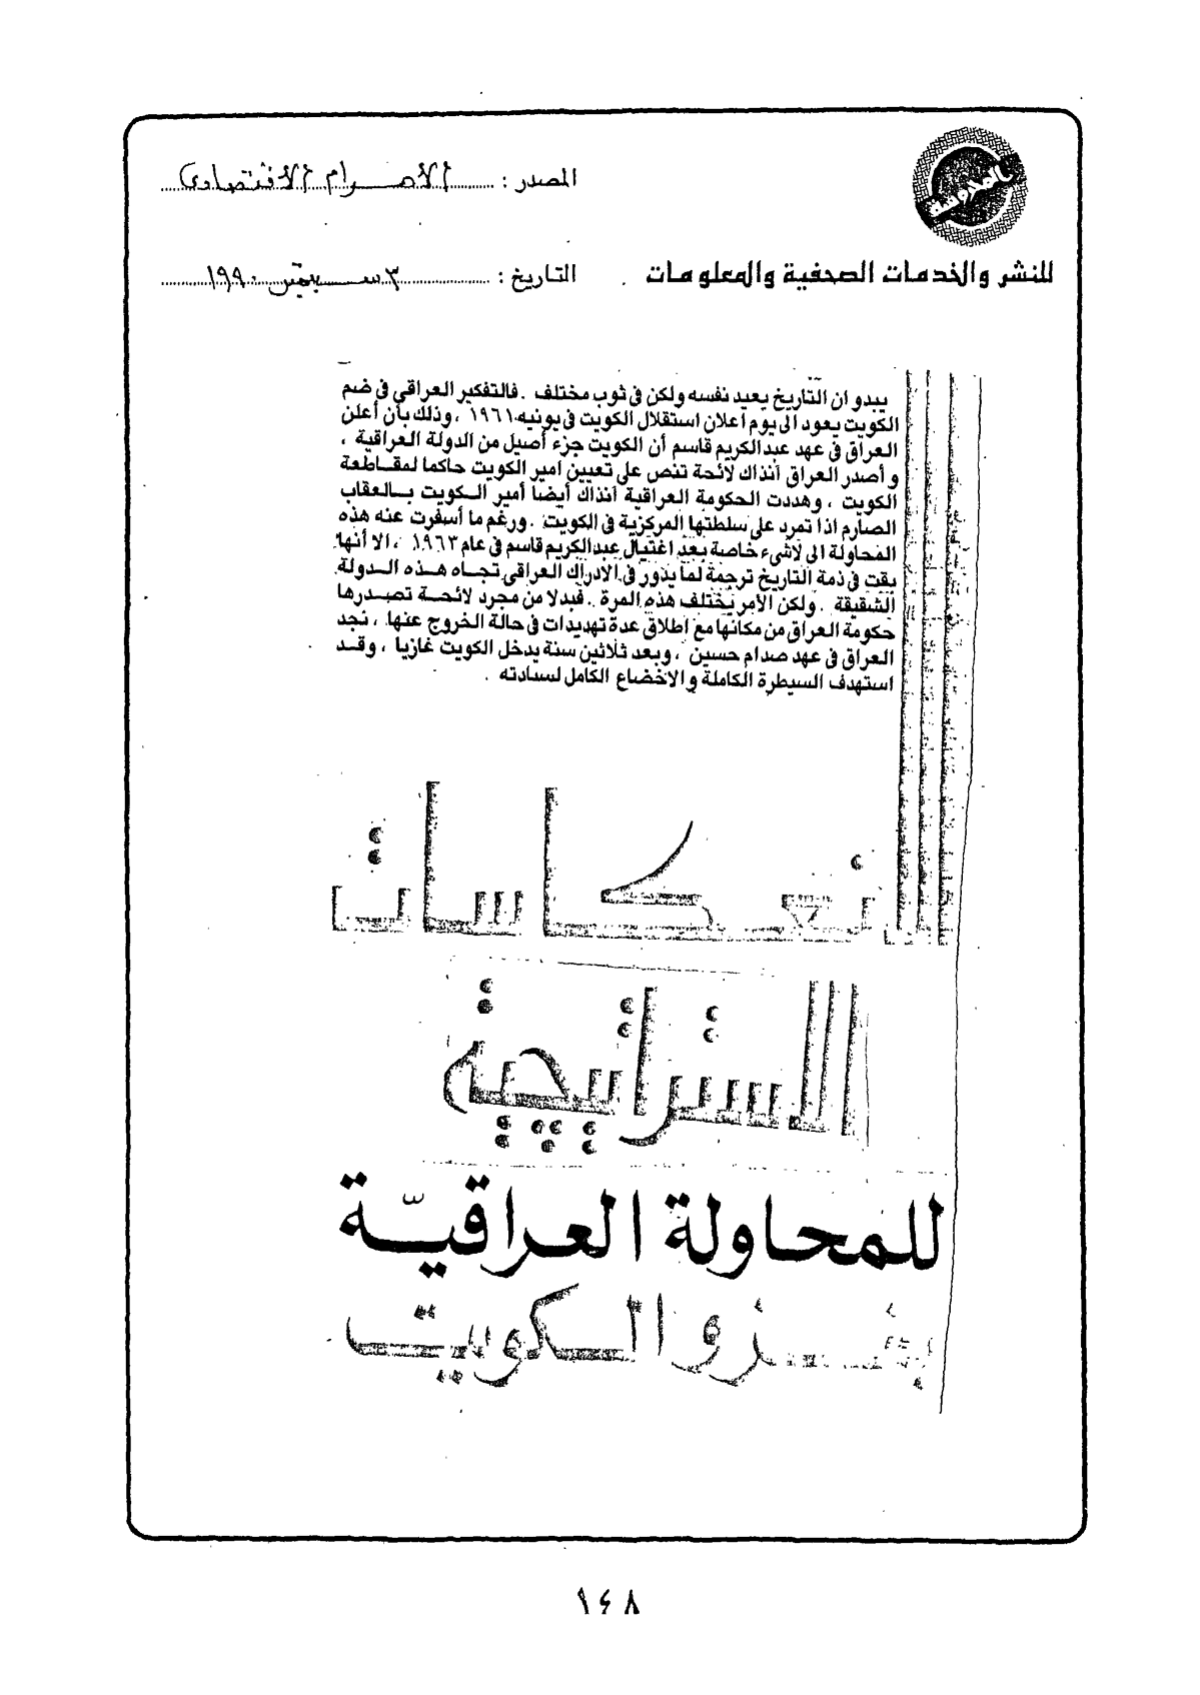 المصدر : الأهرام الاقتصادى
للنشر والخدمات الصحفية والمعلومات
التاريخ : ٣ سبتمبر ١٩٩٠
يبدو ان التاريخ يعيد نفسه ولكن فى ثوب مختلف . فالتفكير العراقي فى ضم
الكويت يعود الى يوم اعلان استقلال الكويت فى يونيه ١٩٦١ ، وذلك بأن أعلن
العراق فى عهد عبدالكريم قاسم أن الكويت جزء أصيل من الدولة العراقية ،
و أصدر العراق آنذاك لائحة تنص على تعيين امير الكويت حاكما لمقاطعة
الكويت ، وهددت الحكومة العراقية آنذاك أيضا أمير الكويت بالعقاب
الصارم اذا تمرد على سلطتها المركزية فى الكويت . ورغم ما أسفرت عنه هذه
المحاولة الى لاشىء خاصة بعد اغتيال عبدالكريم قاسم فى عام ١٩٦٣ ، الا أنها
بقت فى ذمة التاريخ ترجمة لما يدور فى الادراك العراقى تجاه هذه الدولة
الشقيقة . ولكن الأمر يختلف هذه المرة . فبدلا من مجرد لائحة تصدرها
حكومة العراق من مكانها مع اطلاق عدة تهديدات فى حالة الخروج عنها ، نجد
العراق فى عهد صدام حسين ، وبعد ثلاثين سنة يدخل الكويت غازيا ، وقد
استهدف السيطرة الكاملة والاخضاع الكامل لسادته .
انعكاسات
الاستراتيجية
للمحاولة العراقيّة
بغزو الكويت
١٤٨